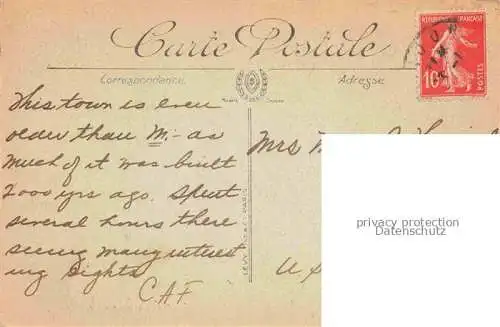 Carte Postale
Correspondance
Adresse
REPUBLIQUE FRANÇAISE
10
POSTES
This town is even
older than M- as
much of it was built
2000 yrs ago. Spent
several hours there
seeing many interest
ing sights
C.A.F.
Mrs
U S
LEVY
PARIS
privacy protection
Datenschutz